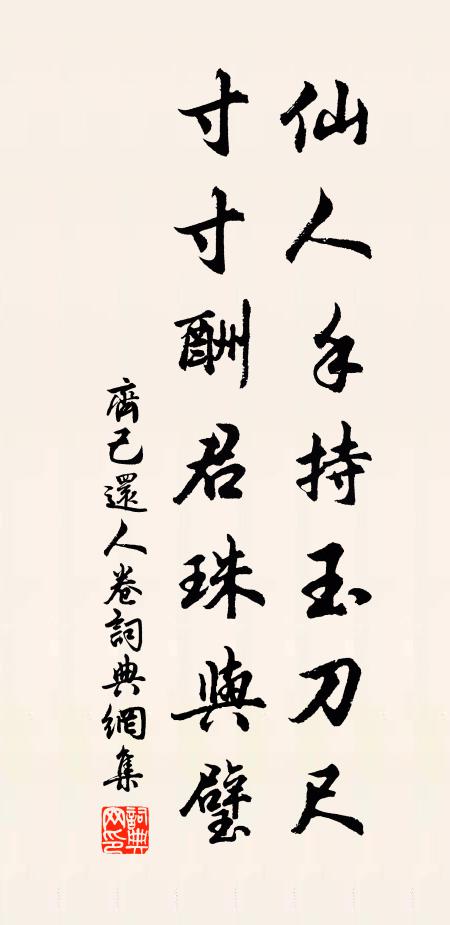 仙人手持玉刀尺
寸寸酬君珠與璧
齊己還人卷詞典網集
詞典網印